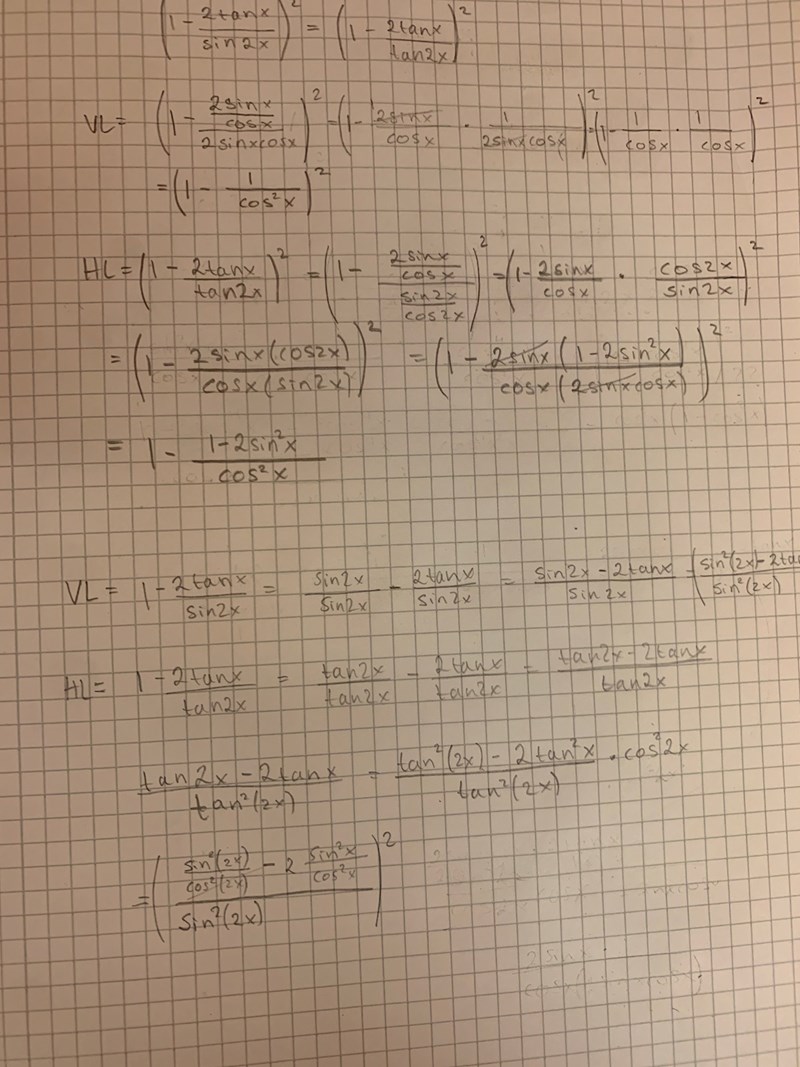 (1 - 2tanx/sin2x)² = (1 - 2tanx/tan2x)²
VL = (1 - (2sinx/cosx)/(2sinxcosx))² = (1 - 2sinx/cosx · 1/(2sinxcosx))² = (1 - 1/cosx · 1/cosx)²
= (1 - 1/cos²x)²
HL = (1 - 2tanx/tan2x)² = (1 - (2sinx/cosx)/(sin2x/cos2x))² = (1 - 2sinx/cosx · cos2x/sin2x)²
= (1 - 2sinx(cos2x)/cosx(sin2x))² = (1 - 2sinx(1-2sin²x)/cosx(2sinxcosx))²
= 1 - (1-2sin²x)/cos²x
VL = 1 - 2tanx/sin2x = sin2x/sin2x - 2tanx/sin2x = (sin2x - 2tanx)/sin2x (sin²(2x) - 2ta/sin²(2x)
HL = 1 - 2tanx/tan2x = tan2x/tan2x - 2tanx/tan2x = (tan2x - 2tanx)/tan2x
(tan2x - 2tanx)/tan²(2x) = (tan²(2x) - 2tan²x)/tan²(2x) · cos²2x
= ((sin²(2x)/cos²(2x) - 2 sin²x/cos²x)/sin²(2x))²